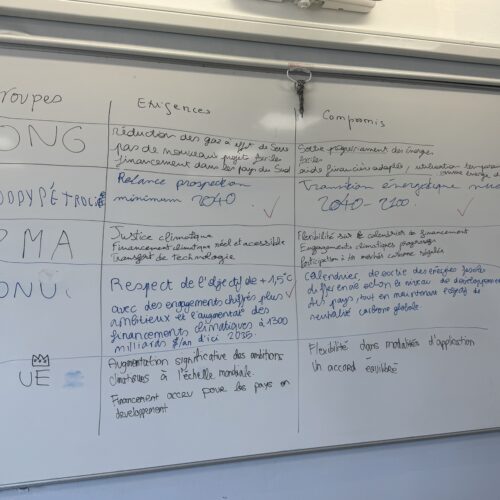 roupes
Exigences
Compromis
ONG
réduction des gaz à effet de Serre
pas de nouveaux projets fossiles
financement dans les pays du Sud
Sortie progressivement des énergies
fossiles
aide financière adaptée, utilisation
comme énergie de
Relance prospection
minimum 2040
Transition énergétique
2040-2100
PMA
Justice climatique
Financement climatique réel et accessible
Transfert de technologie
Flexibilité sur le calendrier de financement
Engagements climatiques progressifs
Participation à les marchés carbone régulés
ONU
Respect de l'objectif de +1,5°C
avec des engagements chiffrés plus
ambitieux et l'augmentat° des
financements climatiques à 1300
milliards $/an d'ici 2035.
Calendrier de sortie des énergies fossiles
différencié selon le niveau de développement
des pays tout en maintenant l'objectif de
neutralité carbone globale.
UE
Augmentation significative des ambitions
climatiques à l'échelle mondiale.
Financement accru pour les pays en
developpement
Flexibilité dans modalités d'application
Un accord équilibré